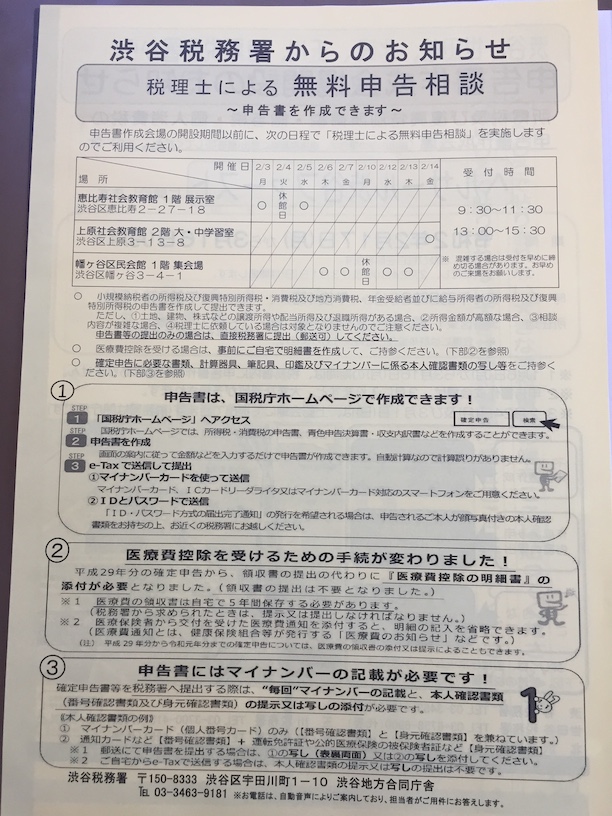 渋谷税務署からのお知らせ
税理士による 無料申告相談
～申告書を作成できます～
申告書作成会場の開設期間以前に、次の日程で「税理士による無料申告相談」を実施します
のでご利用ください。
開催日 2/3 2/4 2/5 2/6 2/7 2/10 2/12 2/13 2/14 受付時間
場所 月 火 水 木 金 月 水 木 金
恵比寿社会教育館 1階 展示室
渋谷区恵比寿2－27－18
○ 休館日 ○
9：30～11：30
13：00～15：30
上原社会教育館 2階 大・中学習室
渋谷区上原3－13－8
○
幡ヶ谷区民会館 1階 集会場
渋谷区幡ヶ谷3－4－1
○ ○ 休館日 ○ ○
※ 混雑する場合は受付を早めに締め切る場合があります。お早めのご来場をお願いします。
○ 小規模納税者の所得税及び復興特別所得税・消費税及び地方消費税、年金受給者並びに給与所得者の所得税及び復興
特別所得税の申告書を作成して提出できます。
ただし、①土地、建物、株式などの譲渡所得や配当所得及び退職所得がある場合、②所得金額が高額な場合、③相談
内容が複雑な場合、④税理士に依頼している場合は対象となりませんのでご注意ください。
申告書等の提出のみの場合は、直接税務署に提出（郵送可）してください。
○ 医療費控除を受ける場合は、事前にご自宅で明細書を作成して、ご持参ください。（下部②を参照）
○ 確定申告に必要な書類、計算器具、筆記具、印鑑及びマイナンバーに係る本人確認書類の写し等をご持参く
ださい。（下部③を参照）
① 申告書は、国税庁ホームページで作成できます！
STEP 1 「国税庁ホームページ」へアクセス 確定申告 検索
国税庁ホームページでは、所得税・消費税の申告書、青色申告決算書・収支内訳書などを作成することができます。
STEP 2 申告書を作成
画面の案内に従って金額などを入力するだけで申告書が作成できます。自動計算なので計算誤りがありません。
STEP 3 e-Taxで送信して提出
①マイナンバーカードを使って送信
マイナンバーカード、ICカードリーダライタ又はマイナンバーカード対応のスマートフォンをご用意ください。
②IDとパスワードで送信
「ID・パスワード方式の届出完了通知」の発行を希望される場合は、申告されるご本人が顔写真付きの本人確認
書類をお持ちの上、お近くの税務署にお越しください。
② 医療費控除を受けるための手続が変わりました！
平成29年分の確定申告から、領収書の提出の代わりに『医療費控除の明細書』の
添付が必要となりました。（領収書の提出は不要となりました。）
※1 医療費の領収書は自宅で5年間保存する必要があります。
（税務署から求められたときは、提示又は提出しなければなりません。）
※2 医療保険者から交付を受けた医療費通知を添付すると、明細の記入を省略できます。
（医療費通知とは、健康保険組合等が発行する「医療費のお知らせ」などです。）
（注） 平成29年分から令和元年分までの確定申告については、医療費の領収書の添付又は提示によることもできます。
③ 申告書にはマイナンバーの記載が必要です！
確定申告書等を税務署へ提出する際は、“毎回”マイナンバーの記載と、本人確認書類
（番号確認書類及び身元確認書類）の提示又は写しの添付が必要です。
《本人確認書類の例》
① マイナンバーカード（個人番号カード）のみ（【番号確認書類】と【身元確認書類】を兼ねています。）
② 通知カードなど【番号確認書類】＋ 運転免許証や公的医療保険の被保険者証など【身元確認書類】
※1 郵送にて申告書を提出する場合は、①の写し（表裏両面）又は②の写しを添付してください。
※2 ご自宅からe-Taxで送信する場合は、本人確認書類の提示又は写しの提出は不要です。
渋谷税務署 〒150-8333 渋谷区宇田川町1－10 渋谷地方合同庁舎
TEL 03-3463-9181 ※お電話は、自動音声によりご案内しており、担当者がご用件にお答えします。